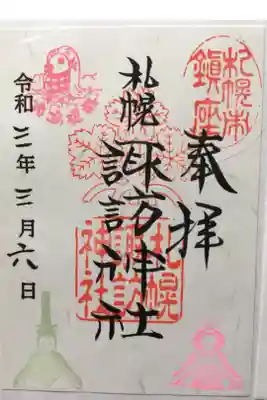 札幌市
鎮座
奉拝
札幌
諏訪神社
札幌
諏訪
神社
令和三年三月六日